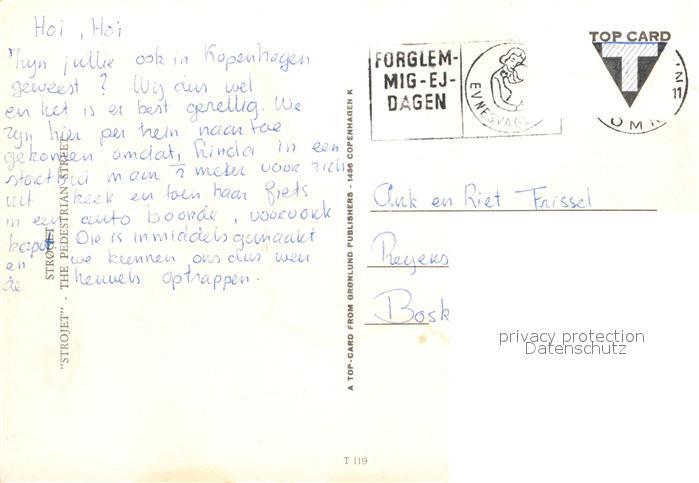 Hoi, Hoi
Zijn jullie ook in Kopenhagen
geweest? Wij dus wel
en het is er best gezellig. We
zijn hier per trein naar toe
gekomen omdat, Linda in een
maar meter voor zich
uit keek en toen haar fiets
in een auto boorde, voorvork
kapot. Die is inmiddels gemaakt
en we kunnen ons dus weer
de heuvels optrappen.
STRØJET
"STROJET" - THE PEDESTRIAN STREET
A TOP-CARD FROM GRØNLUND PUBLISHERS - 1456 COPENHAGEN K
T 119
FORGLEM-
MIG-EJ-
DAGEN
EVNESVAG
TOP CARD
T
11
Ank en Riet Frissel
Reyers
Bosk
privacy protection
Datenschutz